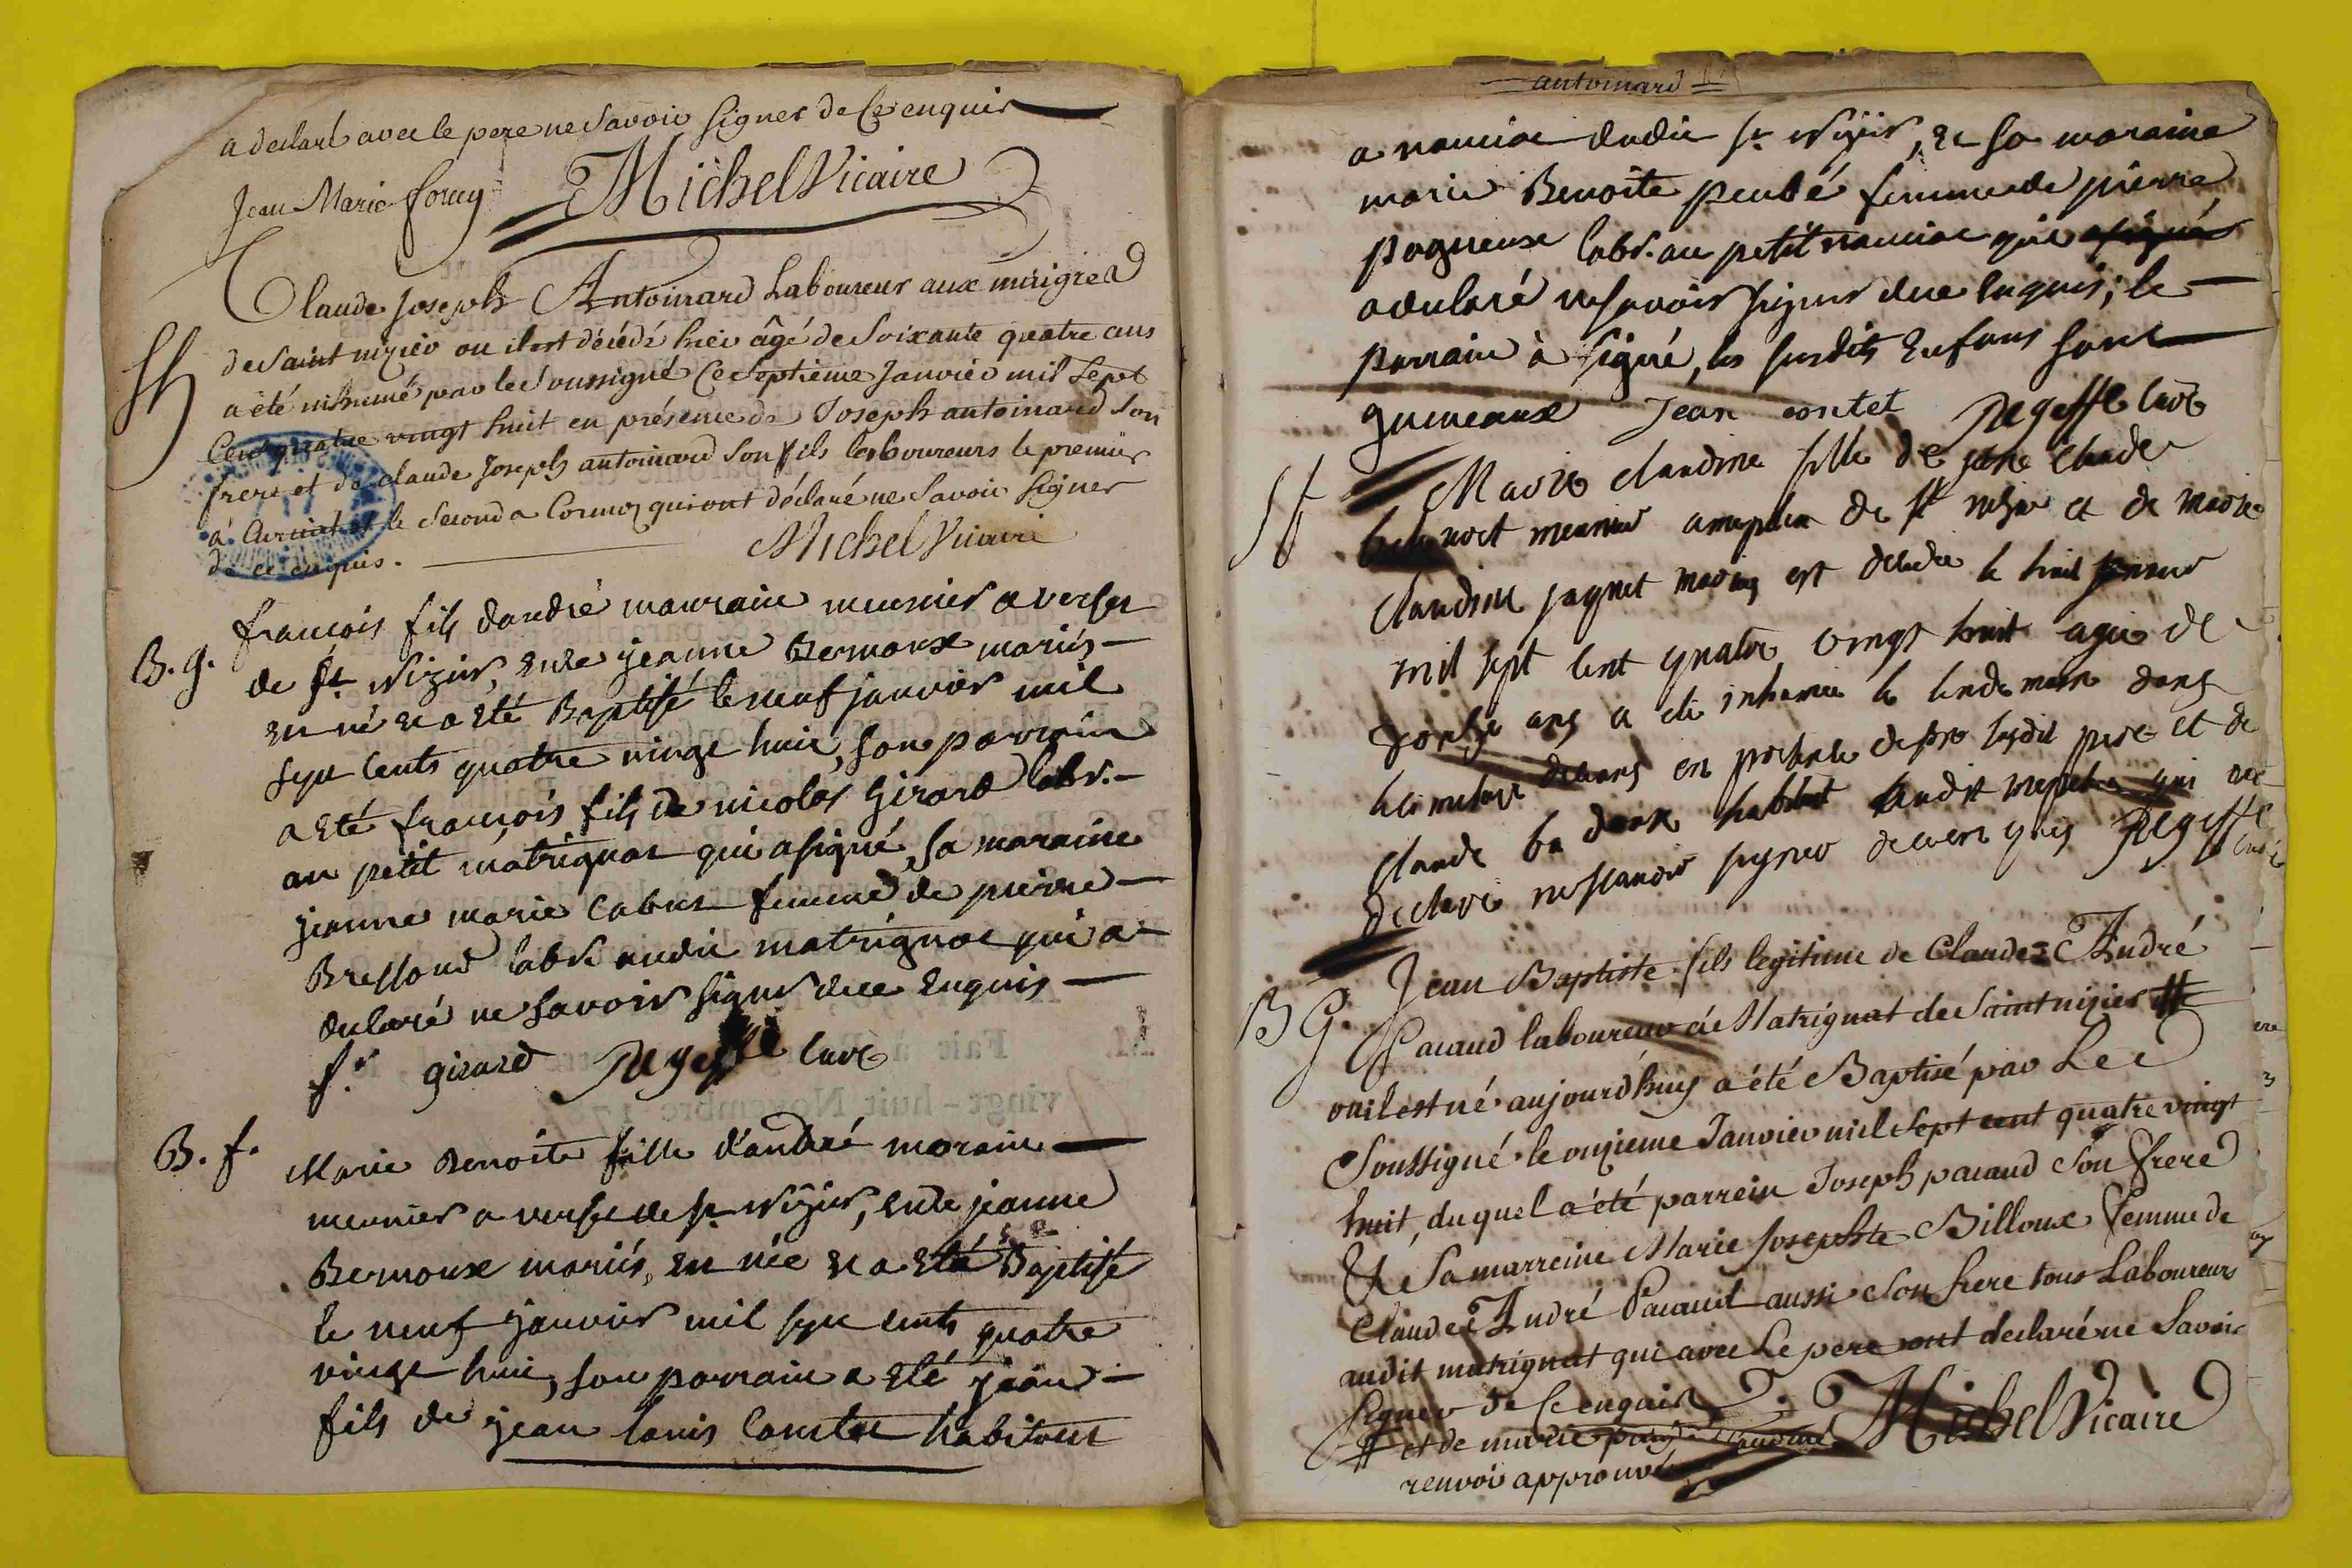 a declaré avec le pere ne Savoir Signer de Ce enquis
Jean Marie forey Michel Vicaire
Claude Joseph Antoinard Laboureur aux
Sh de Saint nizier ou il est décédé hier âgé de Soixante quatre ans
a été inhumé par le Soussigné Ce Septieme Janvier mil Sept
Cent quatre vingt huit en présence de Joseph antoinard Son
frere et de claude Joseph antoinard Son fils laboureurs le premier
à le Second a Cormoz qui ont déclaré ne Savoir Signer
de ce enquis. Michel Vicaire
B. g. françois fils dandré mourain meunier a verser
de st. Nizier, et de jeanne Bernoux mariés
en né et a eté Baptisé le neuf janvier mil
sept cents quatre vingt huit, son parrain
a eté françois fils de nicolas Girard labr.
au petit matrignat qui a signé, sa maraine
jeanne marie Cabut femme de pierre
Bressoud labr. audit matrignat qui a
declaré ne savoir signer de ce enquis
fr girard curé
B. f. Marie Benoite fille d'andré morain
meunier a verser de st. Nizier, et de jeanne
Bernoux mariés, en née et a eté Baptisé
le neuf janvier mil sept cents quatre
vingt huit, son parrain a eté jean
fils de jean louis habitant
antoinard
a dudit st. Nizier, et sa maraine
marie Benoite femme de pierre
pogneux labr. au petit qui a signé
a declaré ne savoir signer de ce enquis; le
parrain à signé, les susdits enfans sont
gumeaux Jean contet curé
Marie claudine fille de claude
benoit meunier de st nizier et de marie
claudine mariés est decedée le huit janvier
mil sept cent quatre vingt huit agée de
ans a été inhumée le lendemain dans
le cimetiere en presence de dudit pere et de
claude habitant audit qui ont
declaré ne scavoir signer de ce enquis curé
B G. Jean Baptiste fils legitime de Claude=André
Pacaud laboureur à Matrignat de Saint nizier #
ou il est né aujourd'huy a été Baptisé par Le
Soussigné le onzieme Janvier mil Sept cent quatre vingt
huit, duquel a été parrein Joseph pacaud Son frere
Et Sa marreine Marie Josephte Billoux femme de
Claude André Pacaud aussi Son frere tous Laboureurs
audit matrignat qui avec Le pere ont declaré ne Savoir
Signer de Ce enquis Michel Vicaire
# et de marie
renvoi approuvé